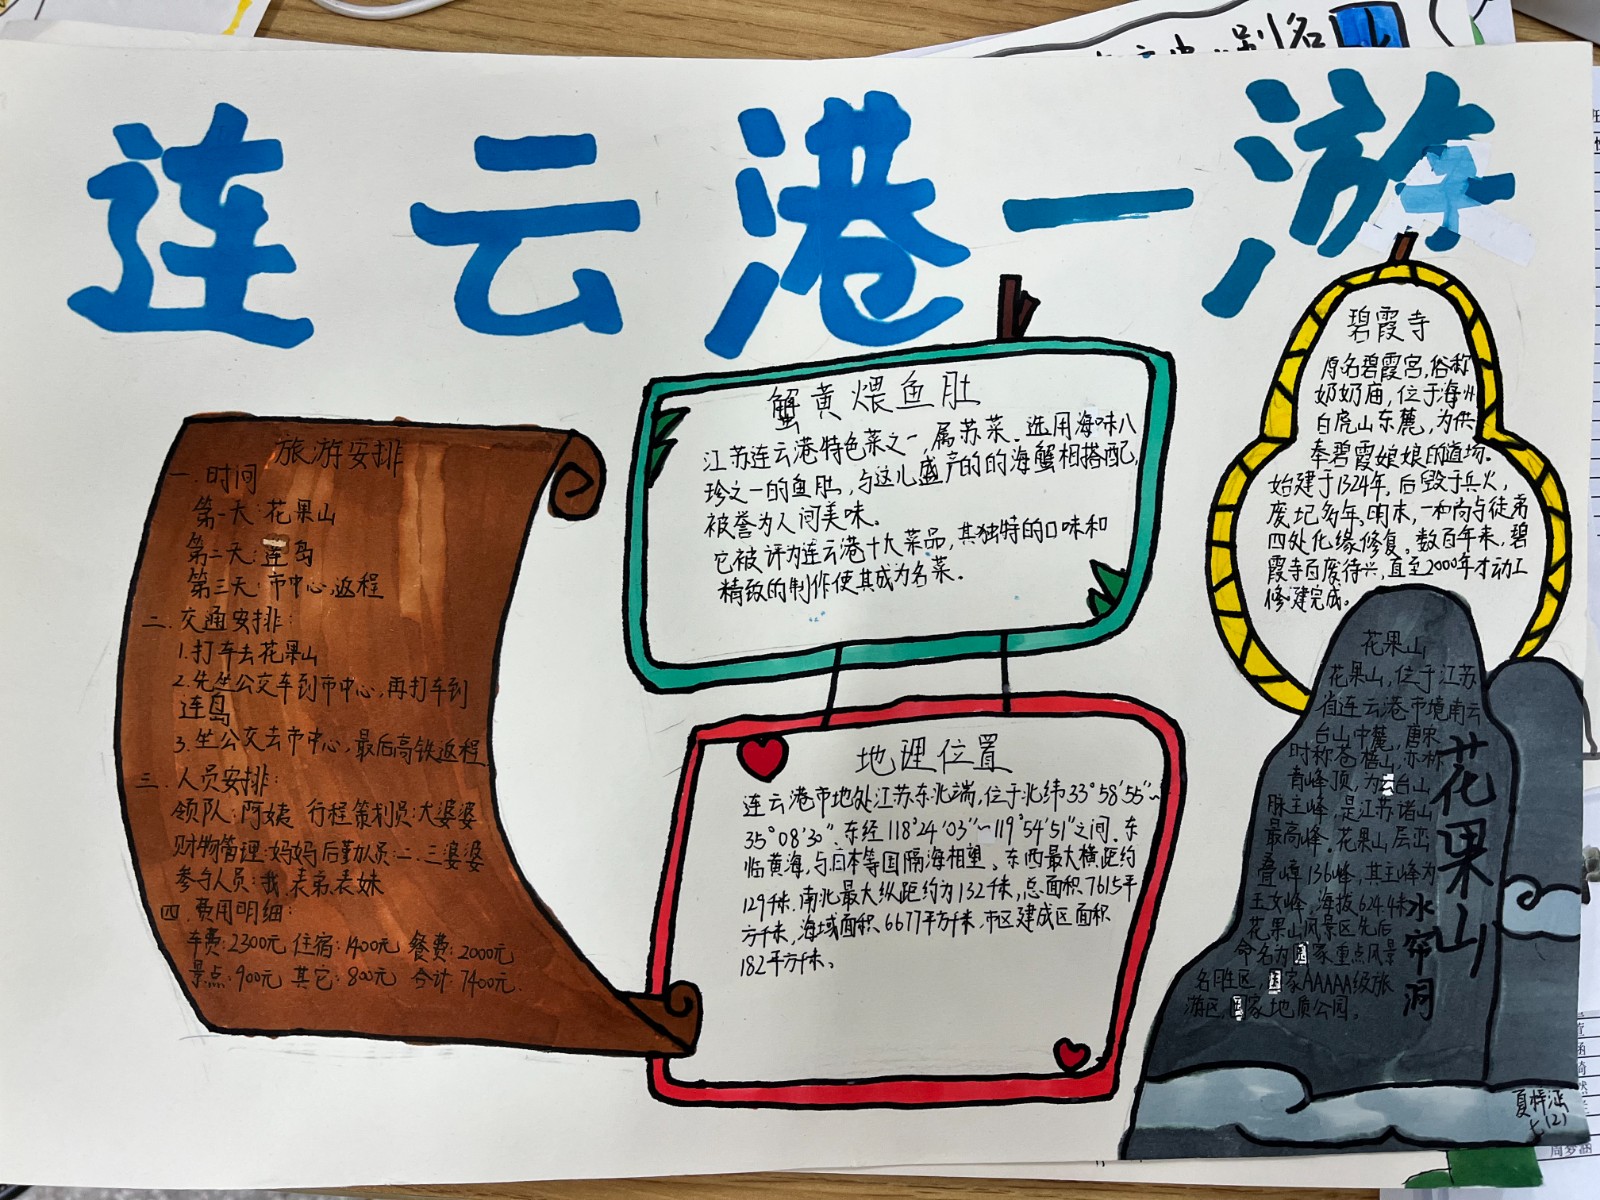 连云港一游
旅游安排
一.时间
第一天:花果山
第二天:连岛
第三天:市中心,返程
二.交通安排:
1.打车去花果山
2.先坐公交车到市中心,再打车到
连岛
3.坐公交去市中心,最后高铁返程.
三.人员安排:
领队:阿姨 行程策划员:大婆婆
财物管理:妈妈 后勤队员:二、三婆婆
参与人员:我,表弟,表妹
四.费用明细:
车费:2300元 住宿:1400元 餐费:2000元
景点:900元 其它:800元 合计:7400元.
蟹黄煨鱼肚
江苏连云港特色菜之一,属苏菜.选用海味八
珍之一的鱼肚,与这儿盛产的的海蟹相搭配,
被誉为人间美味。
它被评为连云港十大菜品,其独特的口味和
精致的制作使其成为名菜.
地理位置
连云港市地处江苏东北端,位于北纬33°58′55″~
35°08′30″.东经118°24′03″~119°54′51″之间.东
临黄海,与日本等国隔海相望、东西最大横距约
129千米.南北最大纵距约为132千米,总面积7615平
方千米,海域面积6677平方千米.市区建成区面积
182平方千米、
碧霞寺
原名碧霞宫,俗称
奶奶庙,位于海州
白虎山东麓,为供
奉碧霞娘娘的道场.
始建于1324年,后毁于兵火,
废圮多年.明末,一和尚与徒弟
四处化缘修复。数百年来,碧
霞寺百废待兴,直至2000年才动工
修建完成。
花果山
花果山,位于江苏
省连云港市境南云
台山中麓,唐宋
时称苍梧山,亦称
青峰顶,为云台山
脉主峰,是江苏诸山
最高峰.花果山层峦
叠嶂136峰,其主峰为
玉女峰,海拔624.4米
花果山风景区先后
命名为国家重点风景
名胜区,国家AAAAA级旅
游区,国家地质公园。
花果山
水帘洞
夏梓涵
七(2)
别名
周梦涵